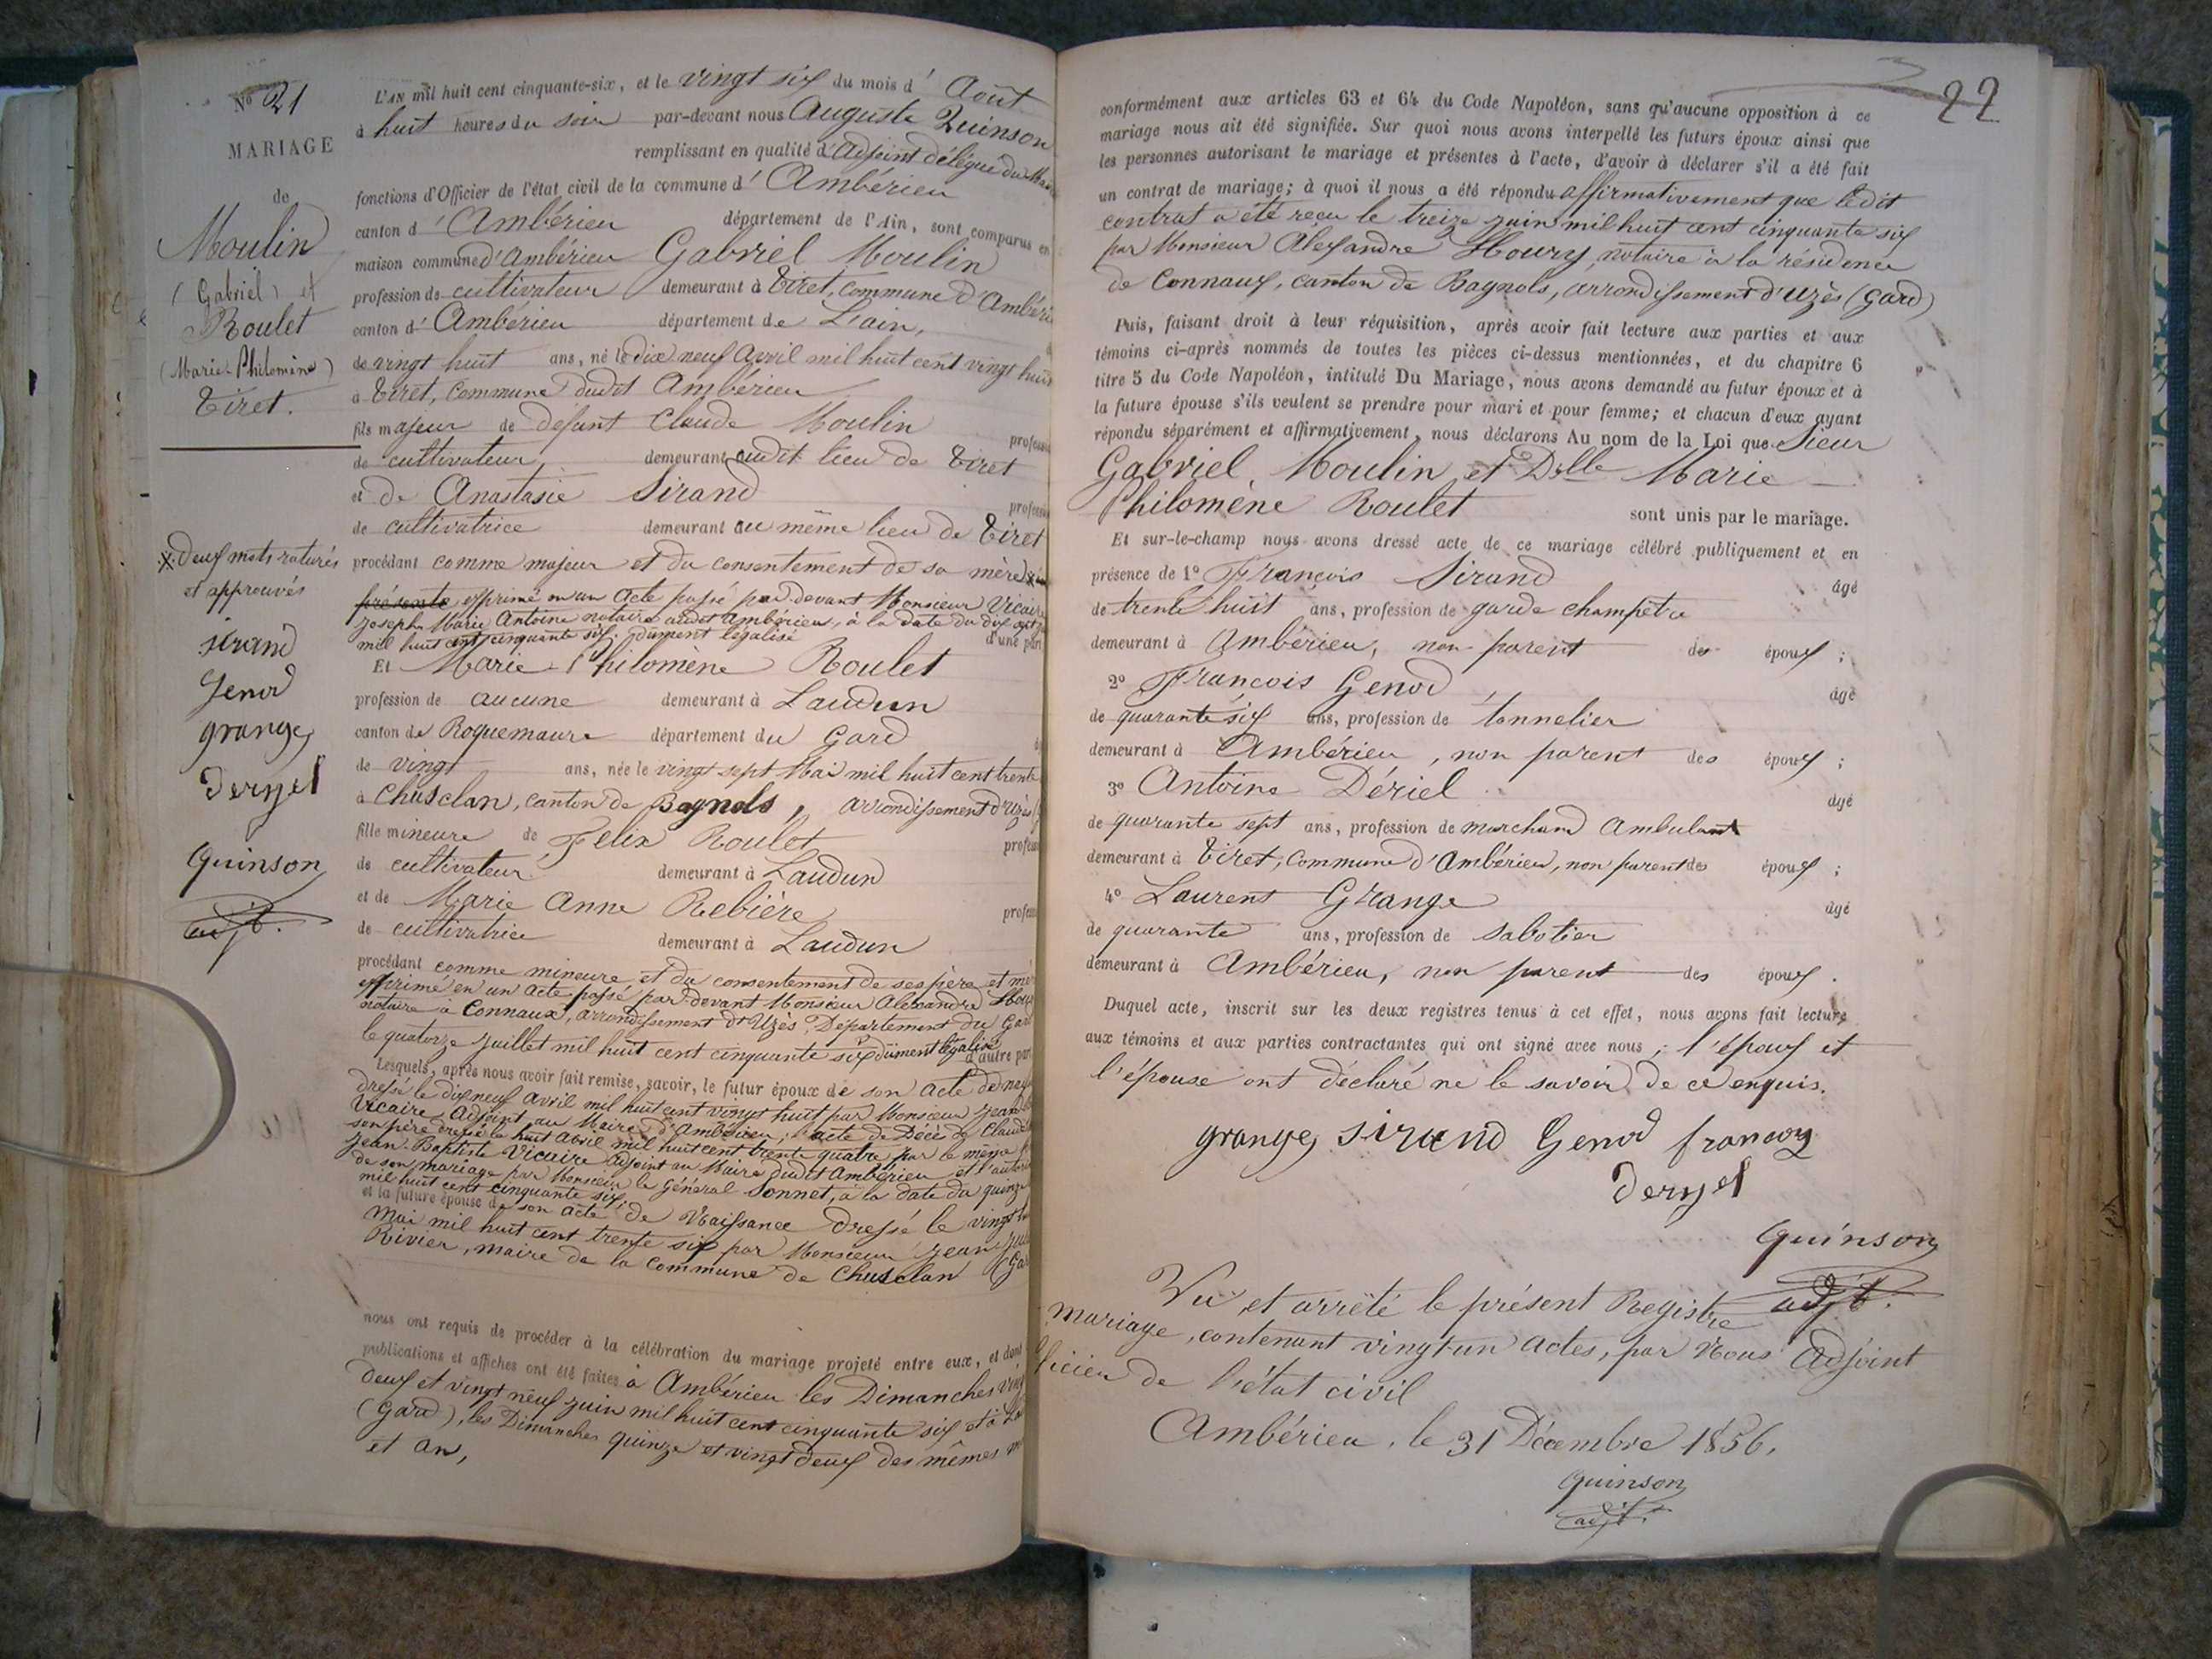 N° 21
MARIAGE
de
Moulin
(Gabriel) et
Roulet
(Marie-Philomène)
Tiret.
X Deux mots raturés
et approuvés
sirand
Genod
grange
deryel
Quinson
adjt.
L'AN mil huit cent cinquante-six, et le vingt six du mois d' Août
à huit heures du soir par-devant nous Auguste Quinson
remplissant en qualité d'Adjoint délégué du Maire
fonctions d'Officier de l'état civil de la commune d' Ambérieu
canton d' Ambérieu département de l'Ain, sont comparus en
maison commune d'Ambérieu Gabriel Moulin
profession de cultivateur demeurant à Tiret, commune d'Ambérieu
canton d' Ambérieu département de L'ain,
de vingt huit ans, né le dix neuf Avril mil huit cent vingt huit
à Tiret, commune dudit Ambérieu
fils majeur de défunt Claude Moulin profession
de cultivateur, demeurant audit lieu de Tiret
et de Anastasie Sirand profession
de cultivatrice demeurant au même lieu de Tiret
procédant comme majeur et du consentement de sa mère X
présente exprimé en un acte passé par devant Monsieur Vicaire
Joseph Marie Antoine notaire audit Ambérieu, à la date du dix août
mil huit cent cinquante six. dûment légalisé d'une part
Et Marie-Philomène Roulet
profession de aucune demeurant à Laudun
canton de Roquemaure département du Gard
de vingt ans, née le vingt sept Mai mil huit cent trente
à Chusclan, canton de Bagnols, arrondissement d'Uzès
fille mineure de Felix Roulet profession
de cultivateur demeurant à Laudun
et de Marie Anne Rebière profession
de cultivatrice demeurant à Laudun
procédant comme mineure et du consentement de ses père et mère
exprimé en un acte passé par devant Monsieur Alexandre Houry
notaire à Connaux, arrondissement d'Uzès, Département du Gard
le quatorze juillet mil huit cent cinquante six dûment légalisé d'autre part
Lesquels, après nous avoir fait remise, savoir, le futur époux de son acte de
dressé le dix neuf avril mil huit cent vingt huit par Monsieur Jean
Vicaire Adjoint au Maire d'Ambérieu; l'acte de Décès de Claude
son père dressé le huit Avril mil huit cent trente quatre par le même
Jean-Baptiste Vicaire Adjoint au Maire dudit Ambérieu et l'autorisation
de son mariage par Monsieur le Général Sonnet, à la date du quinze
mil huit cent cinquante six;
et la future épouse de son acte de Naissance dressé le vingt
Mai mil huit cent trente six par Monsieur Jean
Rivier, maire de la commune de Chusclan (Gard
nous ont requis de procéder à la célébration du mariage projeté entre eux, et dont
publications et affiches ont été faites à Ambérieu les Dimanches vingt
deux et vingt neuf juin mil huit cent cinquante six et à
(Gard), les Dimanches quinze et vingt deux des mêmes mois
et an,
22
conformément aux articles 63 et 64 du Code Napoléon, sans qu'aucune opposition à ce
mariage nous ait été signifiée. Sur quoi nous avons interpellé les futurs époux ainsi que
les personnes autorisant le mariage et présentes à l'acte, d'avoir à déclarer s'il a été fait
un contrat de mariage; à quoi il nous a été répondu affirmativement que ledit
contrat a été reçu le treize juin mil huit cent cinquante six
par Monsieur Alexandre Houry, notaire à la résidence
de Connaux, canton de Bagnols, arrondissement d'Uzès (Gard)
Puis, faisant droit à leur réquisition, après avoir fait lecture aux parties et aux
témoins ci-après nommés de toutes les pièces ci-dessus mentionnées, et du chapitre 6
titre 5 du Code Napoléon, intitulé Du Mariage, nous avons demandé au futur époux et à
la future épouse s'ils veulent se prendre pour mari et pour femme; et chacun d'eux ayant
répondu séparément et affirmativement, nous déclarons Au nom de la Loi que Sieur
Gabriel Moulin et Dlle Marie
Philomène Roulet sont unis par le mariage.
Et sur-le-champ nous avons dressé acte de ce mariage célébré publiquement et en
présence de 1° François Sirand âgé
de trente huit ans, profession de garde champêtre
demeurant à Ambérieu, non parent des époux;
2° François Genod âgé
de quarante six ans, profession de tonnelier
demeurant à Ambérieu, non parent des époux;
3° Antoine Dériel âgé
de quarante sept ans, profession de marchand ambulant
demeurant à Tiret, commune d'Ambérieu, non parent des époux;
4° Laurent Grange âgé
de quarante ans, profession de sabotier
demeurant à Ambérieu, non parent des époux.
Duquel acte, inscrit sur les deux registres tenus à cet effet, nous avons fait lecture
aux témoins et aux parties contractantes qui ont signé avec nous; l'époux et
l'épouse ont déclaré ne le savoir de ce enquis.
grange sirand Genod francois
deryel
Quinson
adjt.
Vu et arrêté le présent Registre
mariage, contenant vingt-un actes, par Nous Adjoint
ficier de l'état civil
Ambérieu, le 31 Décembre 1856.
Quinson
adjt.